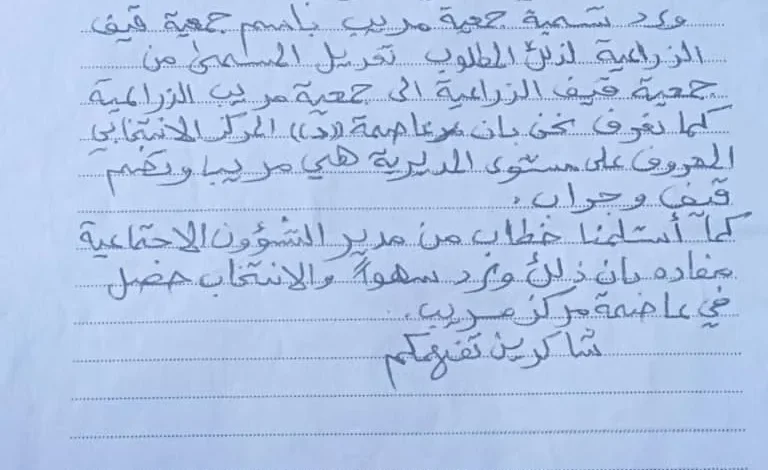 ورد تسمية جمعية مريب باسم جمعية قيف
الزراعية لذلك المطلوب تعديل المسمى من
جمعية قيف الزراعية الى جمعية مريب الزراعية
كما نعرف نحن بان عاصمة ((د)) المركز الانتخابي
المعروف على مستوى المديرية هي مريب وتضم
قيف وجراب.
كما أستلمنا خطاب من مدير الشؤون الاجتماعية
مفاده بان ذلك ورد سهواً والانتخاب حصل
في عاصمة مركز مريب.
شاكرين تفهمكم